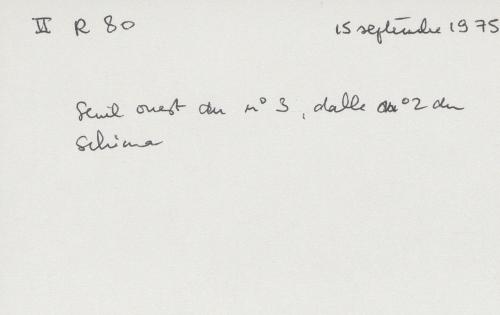 II R 80 15 septembre 1975
Seuil ouest du n° 3, dalle n° 2 du
schéma